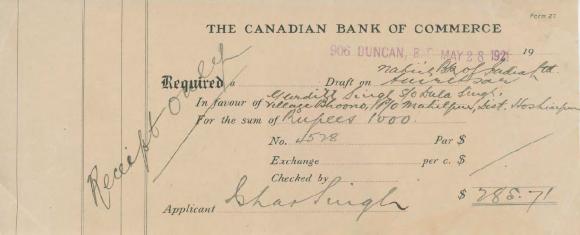 Form 27
THE CANADIAN BANK OF COMMERCE
906 DUNCAN, B.C. MAY 28 1921 19
Required a Draft on National Bk of India Ltd. Amritsar
In favour of Gurditt Singh S/O Lala Singh.
Village Bhoono, P/O Mahilpur, Dist. Hoshiarpur
For the sum of Rupees 1000.
No. 4528 Par $
Exchange per c. $
Checked by
Applicant Ishar Singh $ 285.71
Receipt only